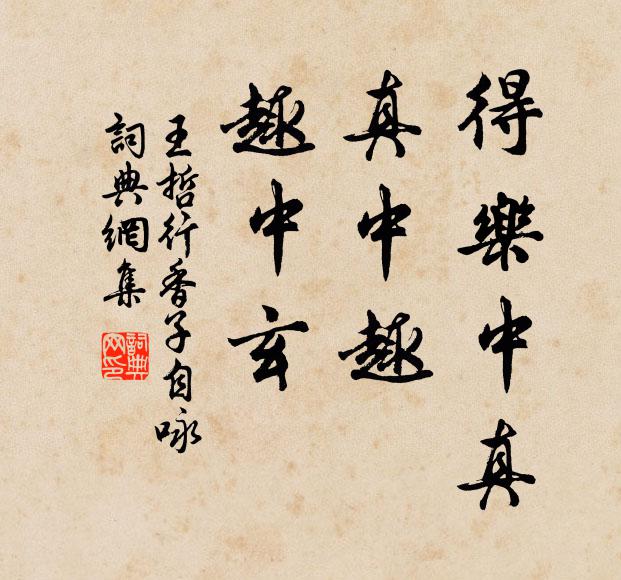 得樂中真
真中趣
趣中玄
王哲行香子自咏
詞典網集
詞典网印